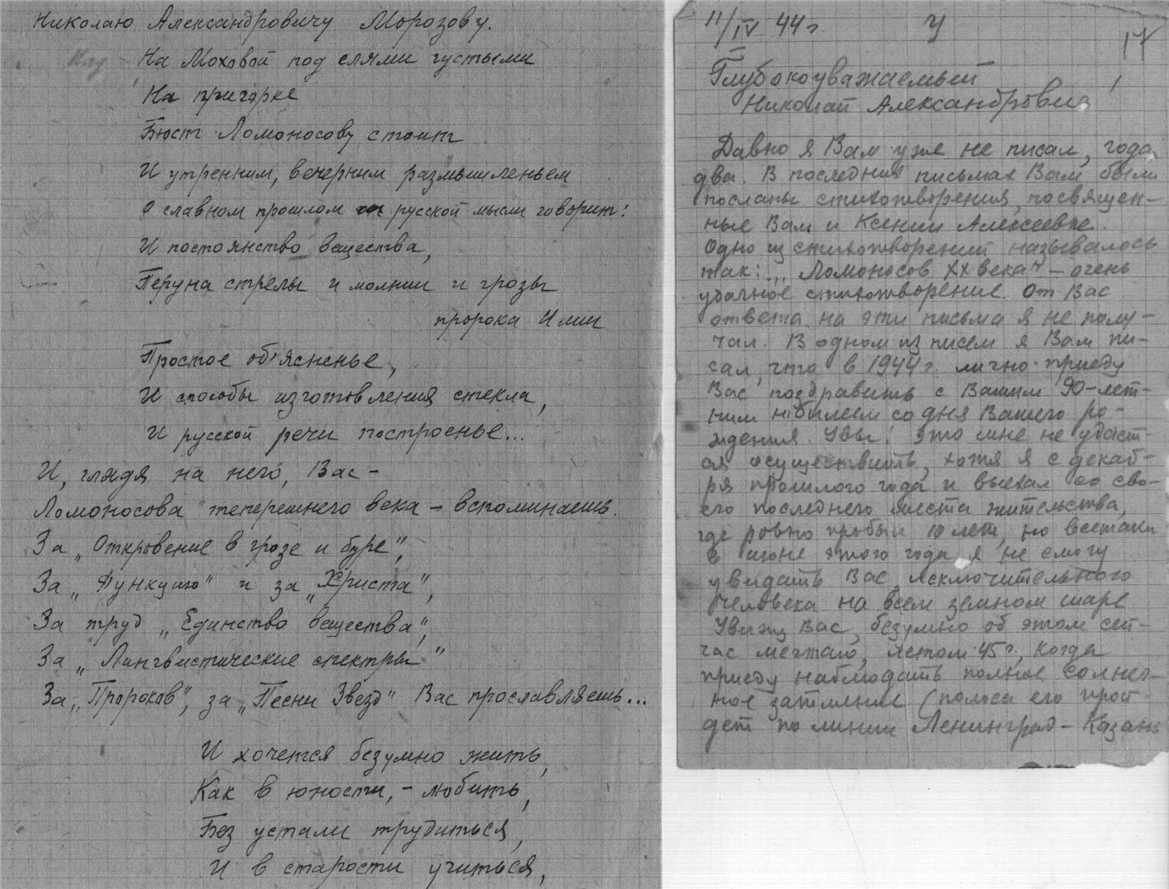 Николаю Александровичу Морозову.
На Моховой под елями густыми
На пригорке
Бюст Ломоносову стоит
И утренним, вечерним размышленьем
О славном прошлом русской мысли говорит:
И постоянство вещества,
Перуна стрелы и молнии и грозы
пророка Илии
Простое об'ясненье,
И способы изготовления стекла,
И русской речи построенье...
И, глядя на него, Вас –
Ломоносова теперешнего века – вспоминаешь.
За „Откровение в грозе и буре",
За „Функцию" и за „Христа",
За труд „Единство вещества",
За „Лингвистические спектры"
За „Пророков", за „Песни Звезд" Вас прославляешь...
И хочется безумно жить,
Как в юности, – любить,
Без устали трудиться,
И в старости учиться,
11/IV 44 г. 17
Глубокоуважаемый
Николай Александрович!
Давно я Вам уже не писал, года
два. В последних письмах Вам были
посланы стихотворения, посвящен-
ные Вам и Ксении Алексеевне.
Одно из стихотворений называлось
так: „Ломоносов XX века" – очень
удачное стихотворение. От Вас
ответа на эти письма я не полу-
чал. В одном из писем я Вам пи-
сал, что в 1944 г. лично приеду
Вас поздравить с Вашим 90-лет-
ним юбилеем со дня Вашего ро-
ждения. Увы! Это мне не удаст-
ся осуществить, хотя я с декаб-
ря прошлого года и выехал со сво-
его последнего места жительства,
где ровно пробыл 10 лет, но всетаки
в июне этого года я не смогу
увидать Вас, исключительного
человека на всем земном шаре
Увижу Вас, безумно об этом сей-
час мечтаю, летом 45 г., когда
приеду наблюдать полное солнеч-
ное затмение (полоса его прой-
дет по линии Ленинград – Казань